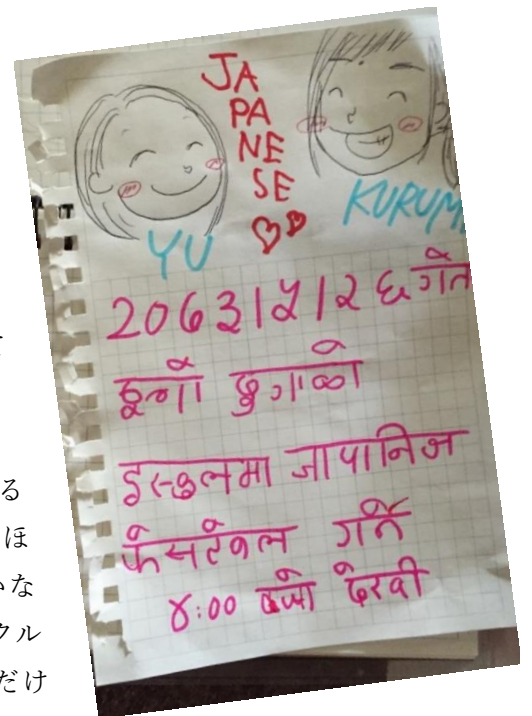 JA
PA
NE
SE
YU
KURUM
2063/५/२६ गते
ठूलो ढुगाको
इस्कुलमा जापानिज
फेसटेबल गर्ने
४:०० बजे देखी
る
ほ
な
クル
だけ